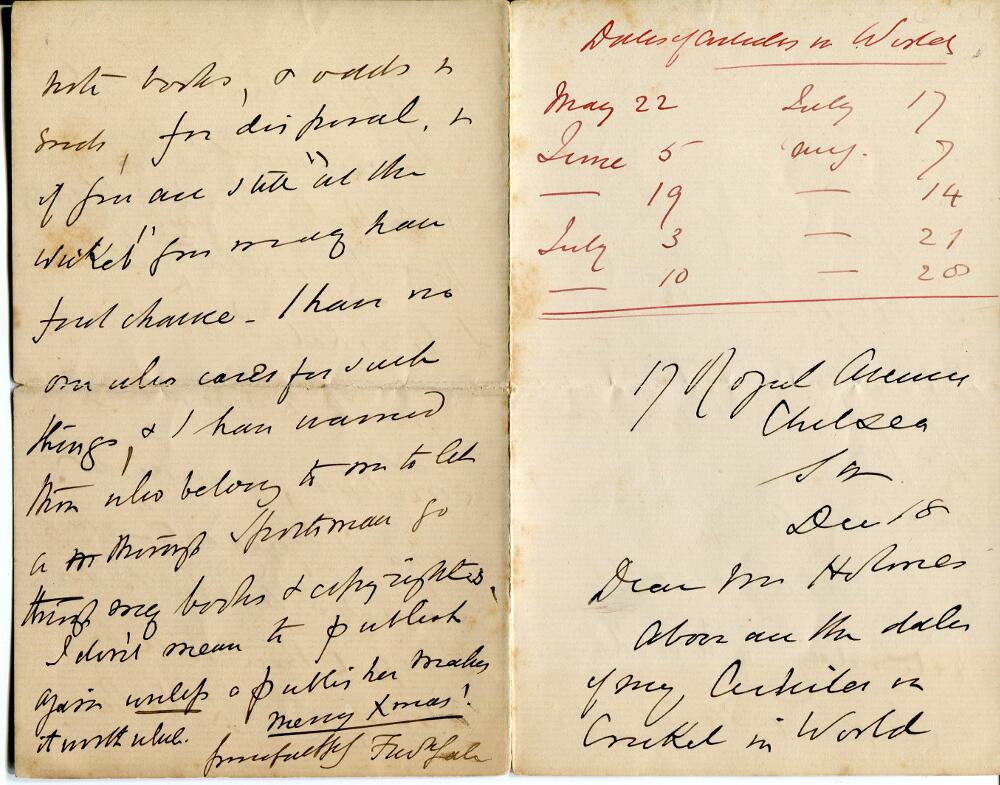 Dates of Articles in World
May 22 July 17
June 5 Aug. 7
— 19 — 14
July 3 — 21
— 10 — 28
17 Royal Avenue
Chelsea
SW
Dec 18
Dear Mr Holmes
Above are the dates
of my Articles on
Cricket in World
note books, & odds &
ends, for disposal, &
if you are still "at the
wicket" you may have
first chance - I have no
one who cares for such
things, & I have warned
those who belong to me to let
a thorough Sportsman go
through my books & copyrights.
I don't mean to publish
again unless a publisher makes
it worth while.
Merry Xmas!
Yours faithfully Fredk Gale